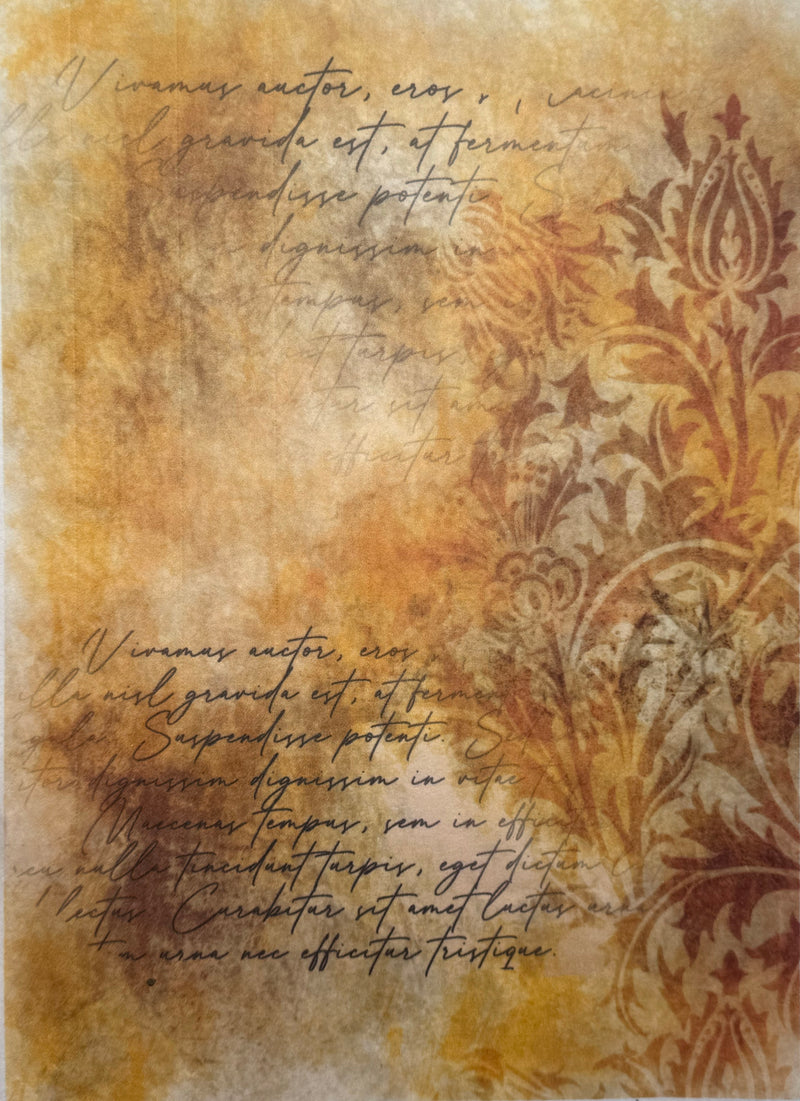 Vivamus auctor, eros
nisl gravida est, at fermentum
Suspendisse potenti Sed
dignissim in
tempus, sem
turpis,
sit
efficitur
Vivamus auctor, eros
nisl gravida est, at fermen
Suspendisse potenti. Sed
dignissim dignissim in vitae
Maecenas tempus, sem in effici
eu nulla tincidunt turpis, eget dictum
lectus. Curabitur sit amet luctus urna
urna nec efficitur tristique.